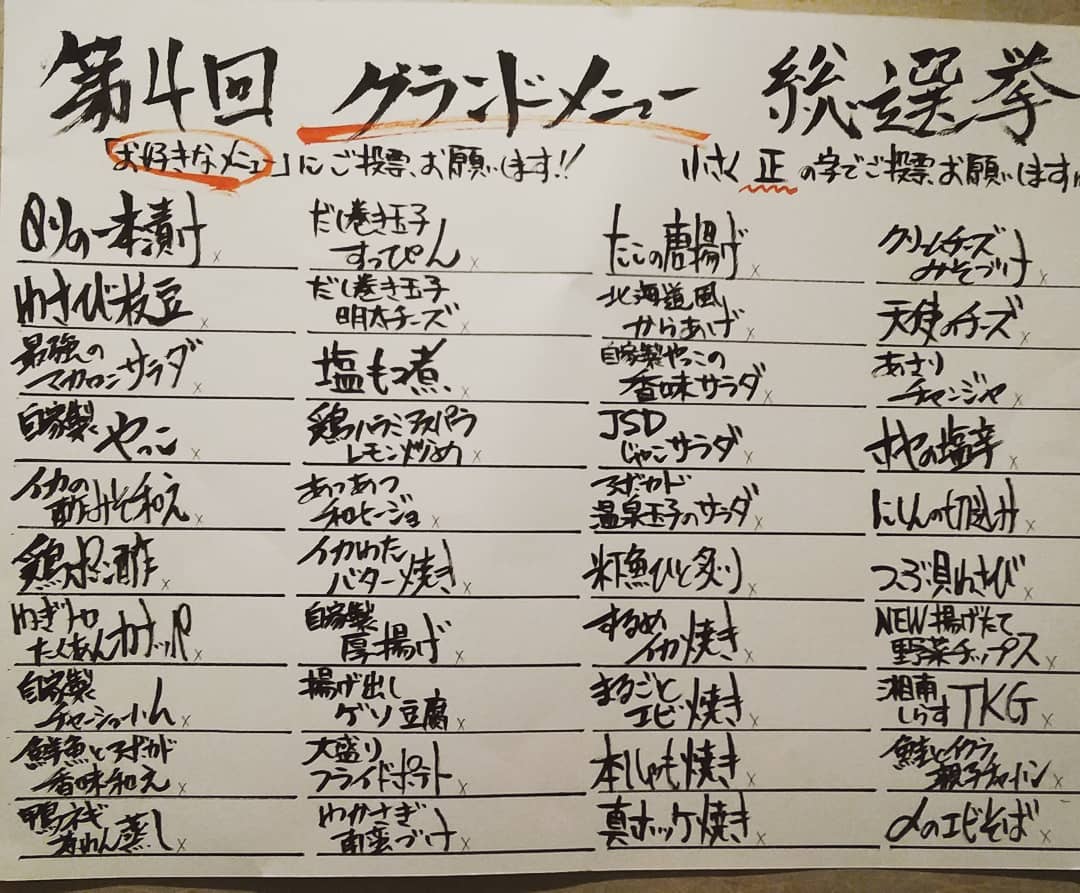 第4回 グランドメニュー 総選挙
「お好きなメニュー」にご投票、お願いします!!
小さく 正 の字でご投票、お願いします
Qりの一本漬け
わさび枝豆
最強の
マカロニサラダ
自家製
やっこ
イカの
酢みそ和え
鶏ポン酢
ねぎトロ
たくあんカナッペ
自家製
鮮魚とアボカド
香味和え
鴨ネギ
茶わん蒸し
だし巻き玉子
すっぴん
だし巻き玉子
明太チーズ
塩もつ煮
鶏ハラミアスパラ
レモン炒め
あつあつ
和ヒージョ
イカわた
バター焼き
自家製
厚揚げ
揚げ出し
ゲソ豆腐
大盛り
フライドポテト
わかさぎ
南蛮づけ
たこの唐揚げ
北海道風
からあげ
自家製やっこの
香味サラダ
JSD
じゃこサラダ
アボカド
温泉玉子のサラダ
魚ひと炙り
するめ
イカ焼き
まるごと
エビ焼き
本ししゃも焼き
真ホッケ焼き
クリームチーズ
みそづけ
天使のチーズ
あさり
チャンジャ
ホヤの塩辛
にしんの切込み
つぶ貝わさび
NEW揚げたて
野菜チップス
湘南
しらすTKG
鮭とイクラ
親子チャーハン
〆のエビそば